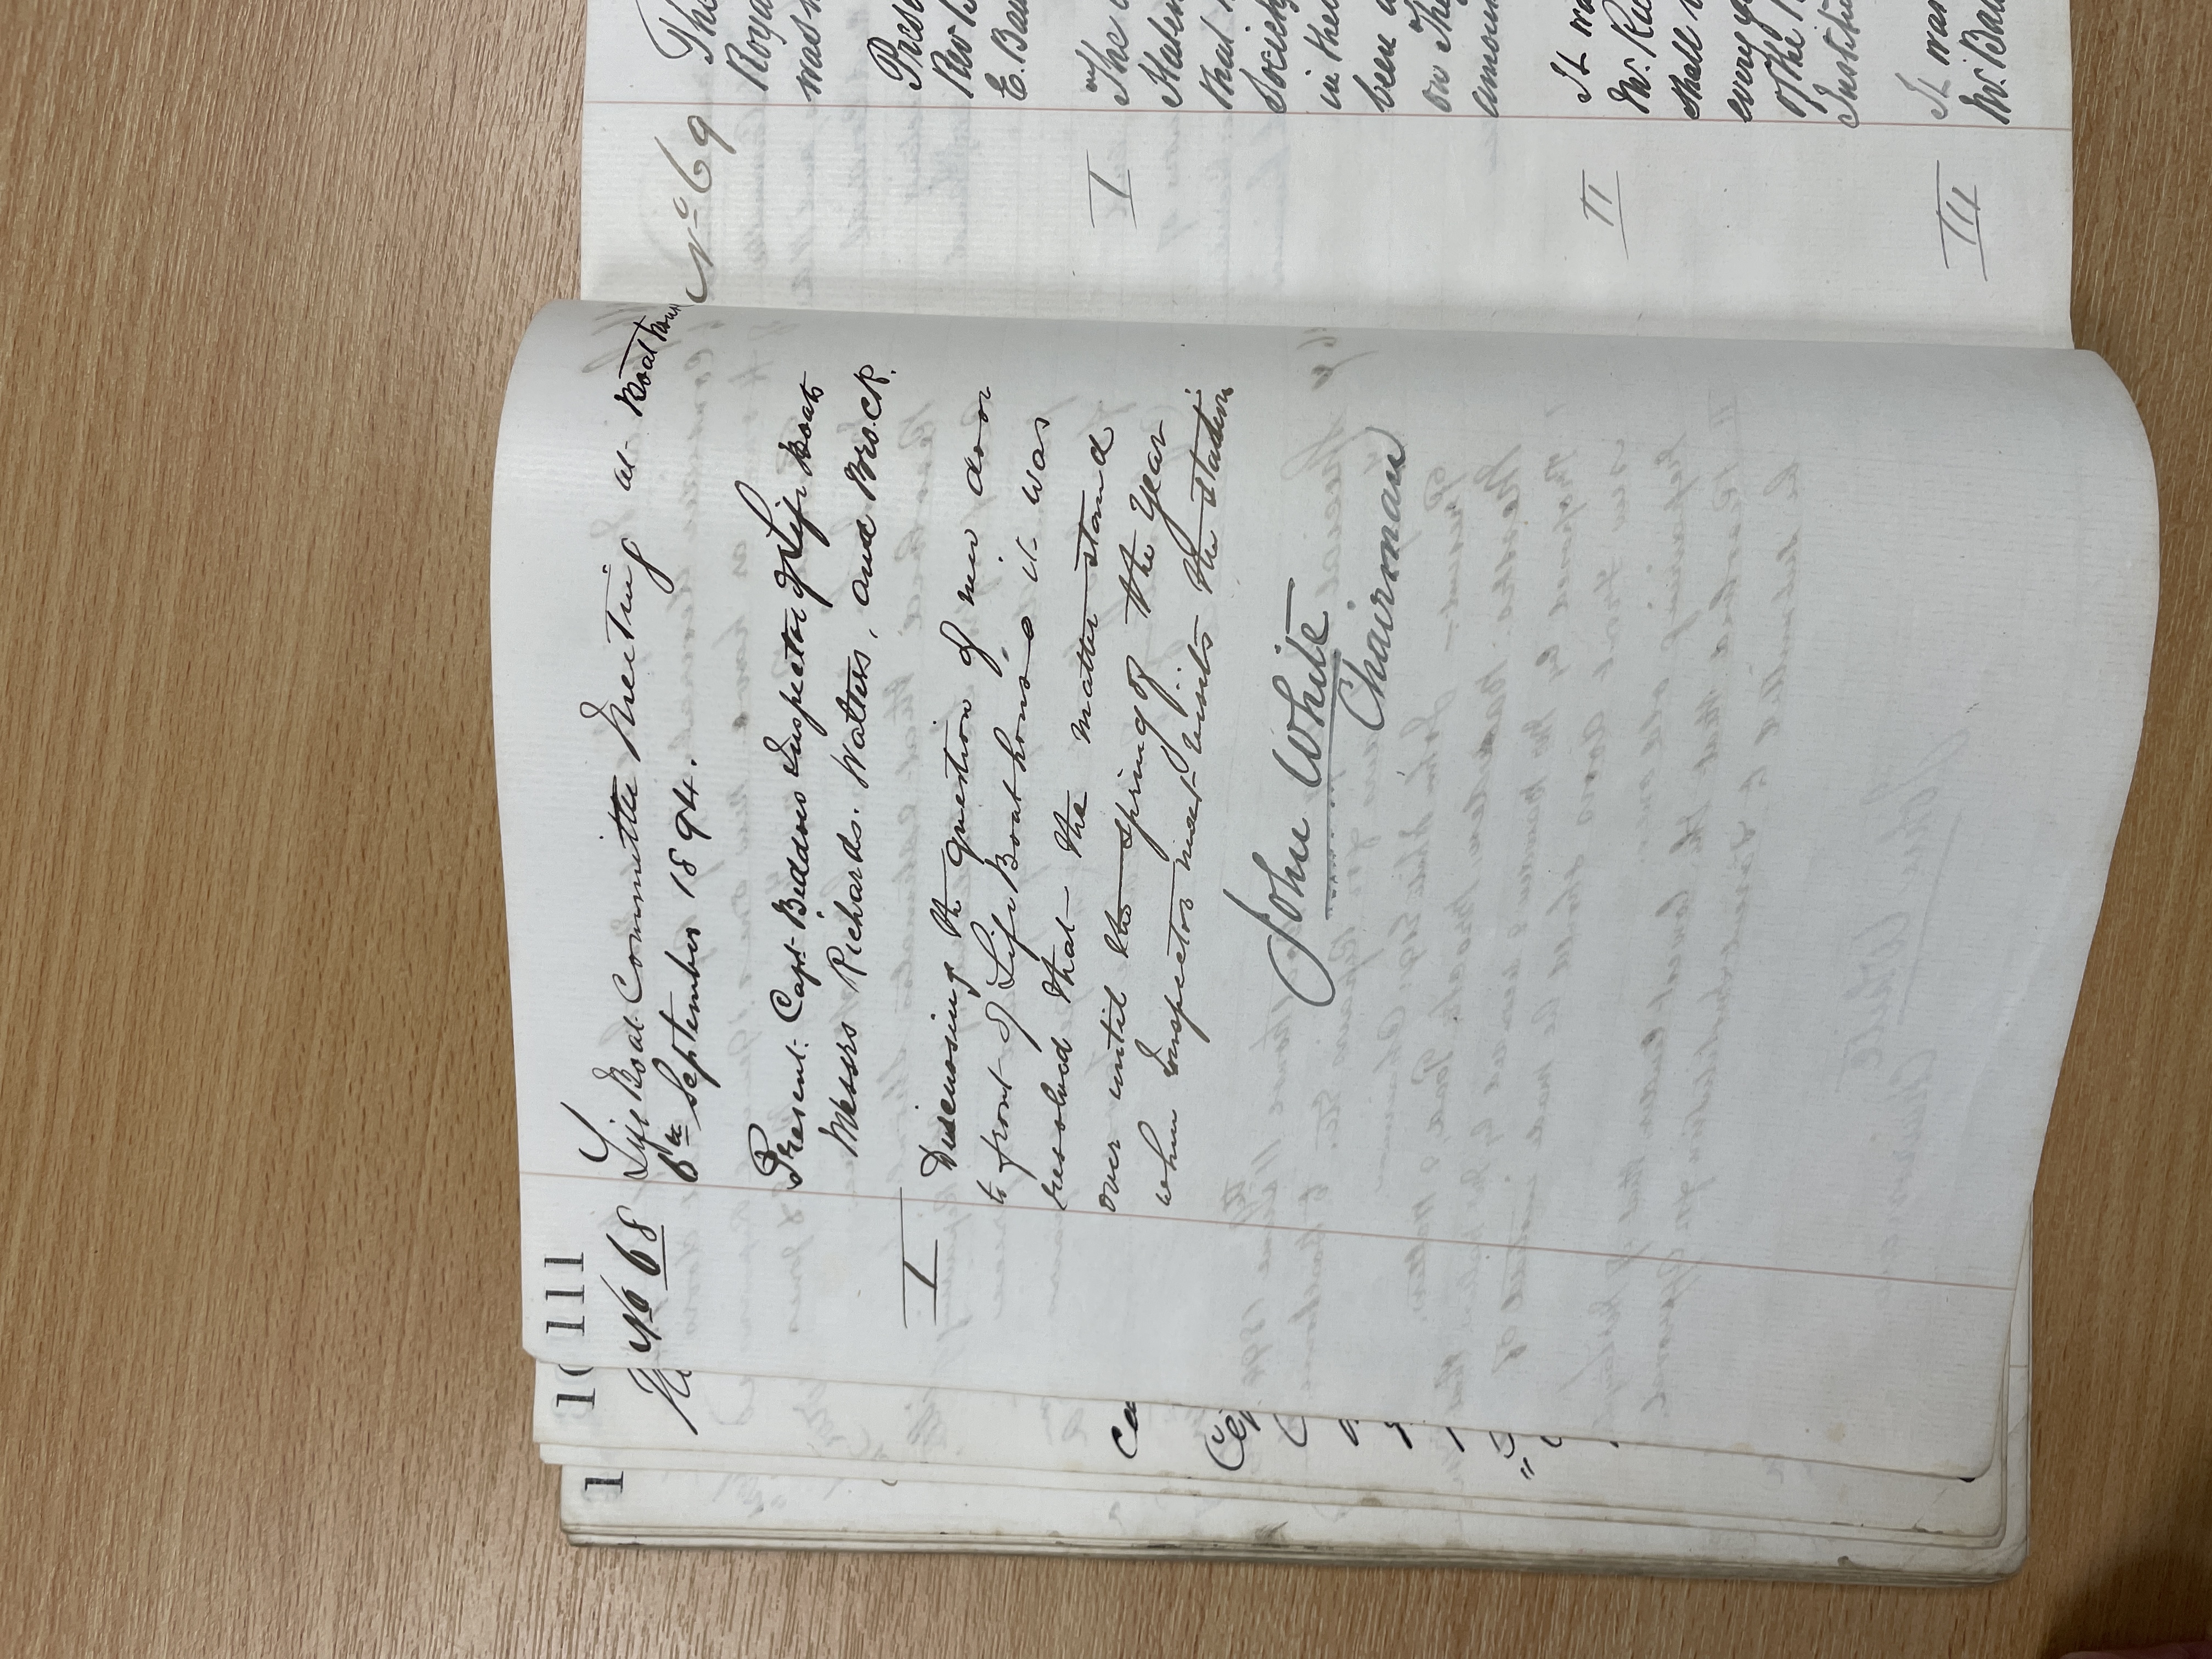 111
No 68 Life Boat Committee Meeting at Boat house
6th September 1894.
Present: Capt. Beddoes Inspector of Life Boats
Messrs Richards. Watters, and Brock.
I
Discussing the question of new door
to front of Life Boat house, it was
resolved that the matter stand
over until the spring of the year
when Inspector next visits the station
John White
Chairman
No 69
The
Roya
was
Prese
Rev
E. Bau
I
The
State
that
Society
in the
been
on the
amoun
II
It wa
Mr. Ric
shall
every
of the
Institu
III
It was
Mr. Bau